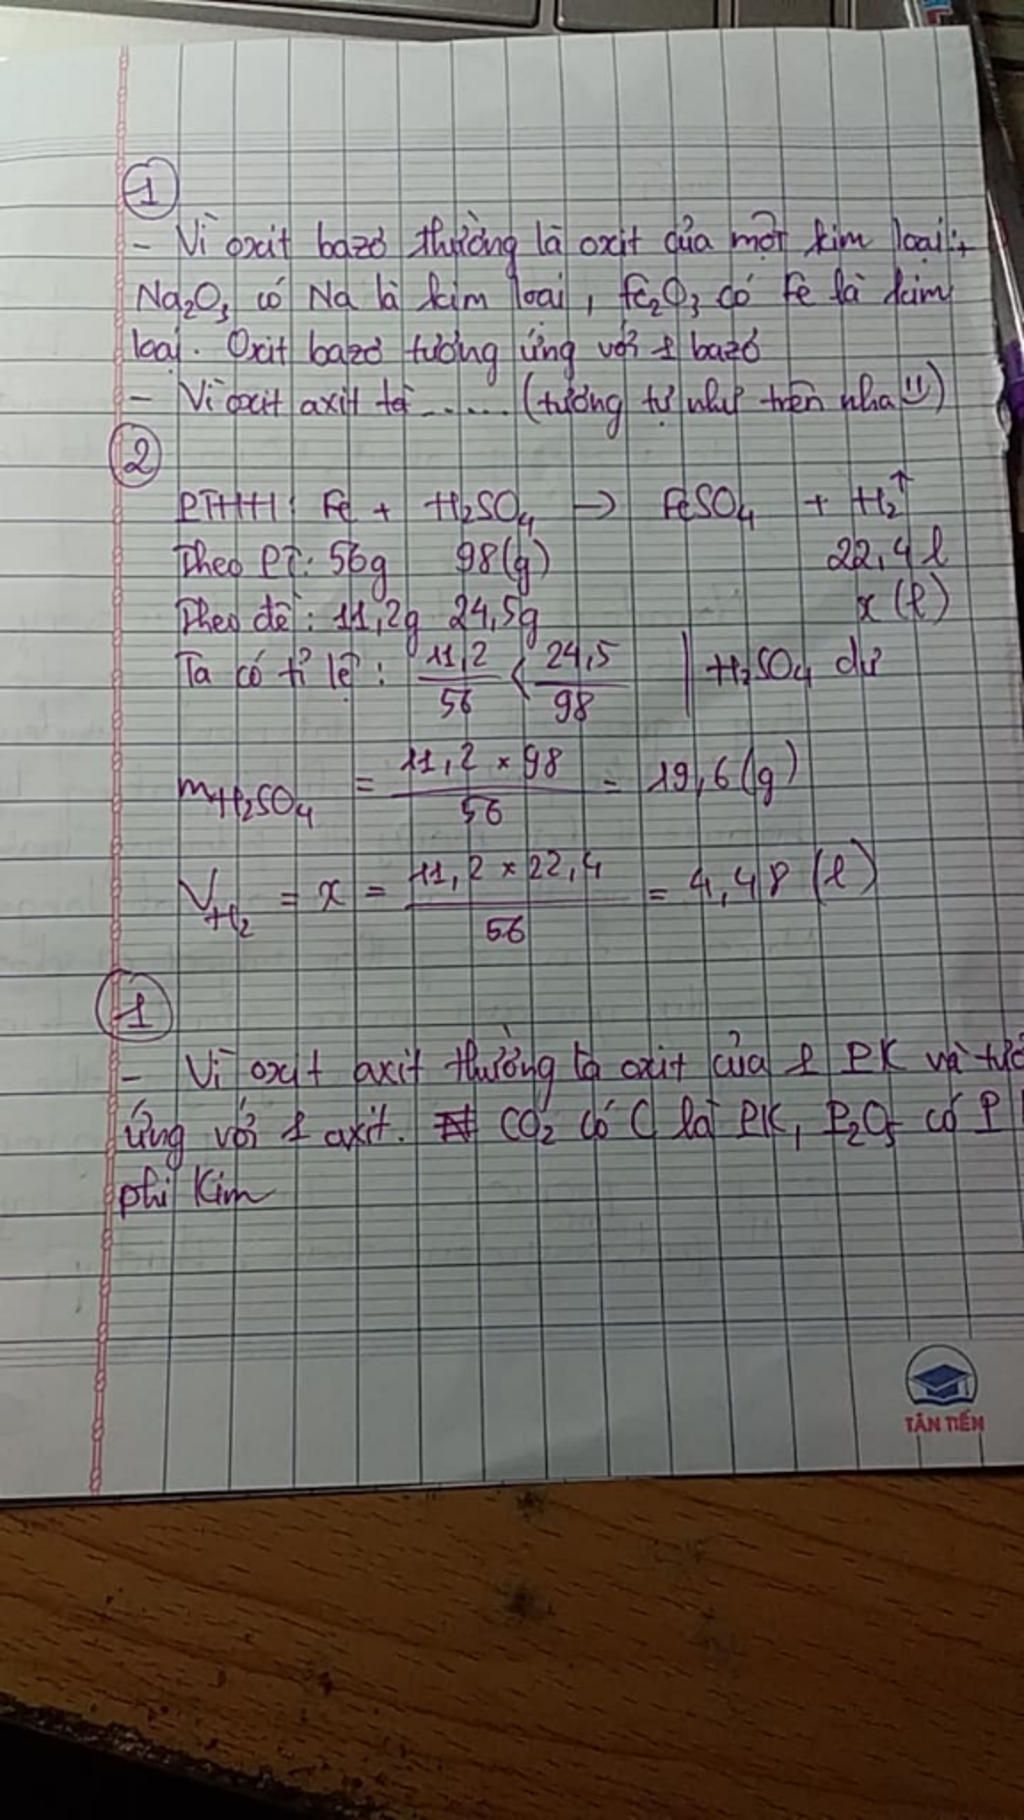 1
- Vì oxit bazơ thường là oxit của một kim loại:+
Na₂O₃ có Na là kim loại, Fe₂O₃ có Fe là kim
loại. Oxit bazơ tương ứng với 1 bazơ
- Vì oxit axit là ...... (tương tự như trên nha =))
2
PTHH: Fe + H₂SO₄ → FeSO₄ + H₂↑
Theo PT: 56g 98(g) 22,4 l
Theo đề: 11,2g 24,5g x (l)
Ta có tỉ lệ: 11,2/56 < 24,5/98 | H₂SO₄ dư
mH₂SO₄ = 11,2 × 98 / 56 = 19,6 (g)
VH₂ = x = 11,2 × 22,4 / 56 = 4,48 (l)
1
- Vì oxit axit thường là oxit của 1 PK và
ứng với 1 axit. CO₂ có C là PK, P₂O₅ có P
phi kim
TÂN TIẾN